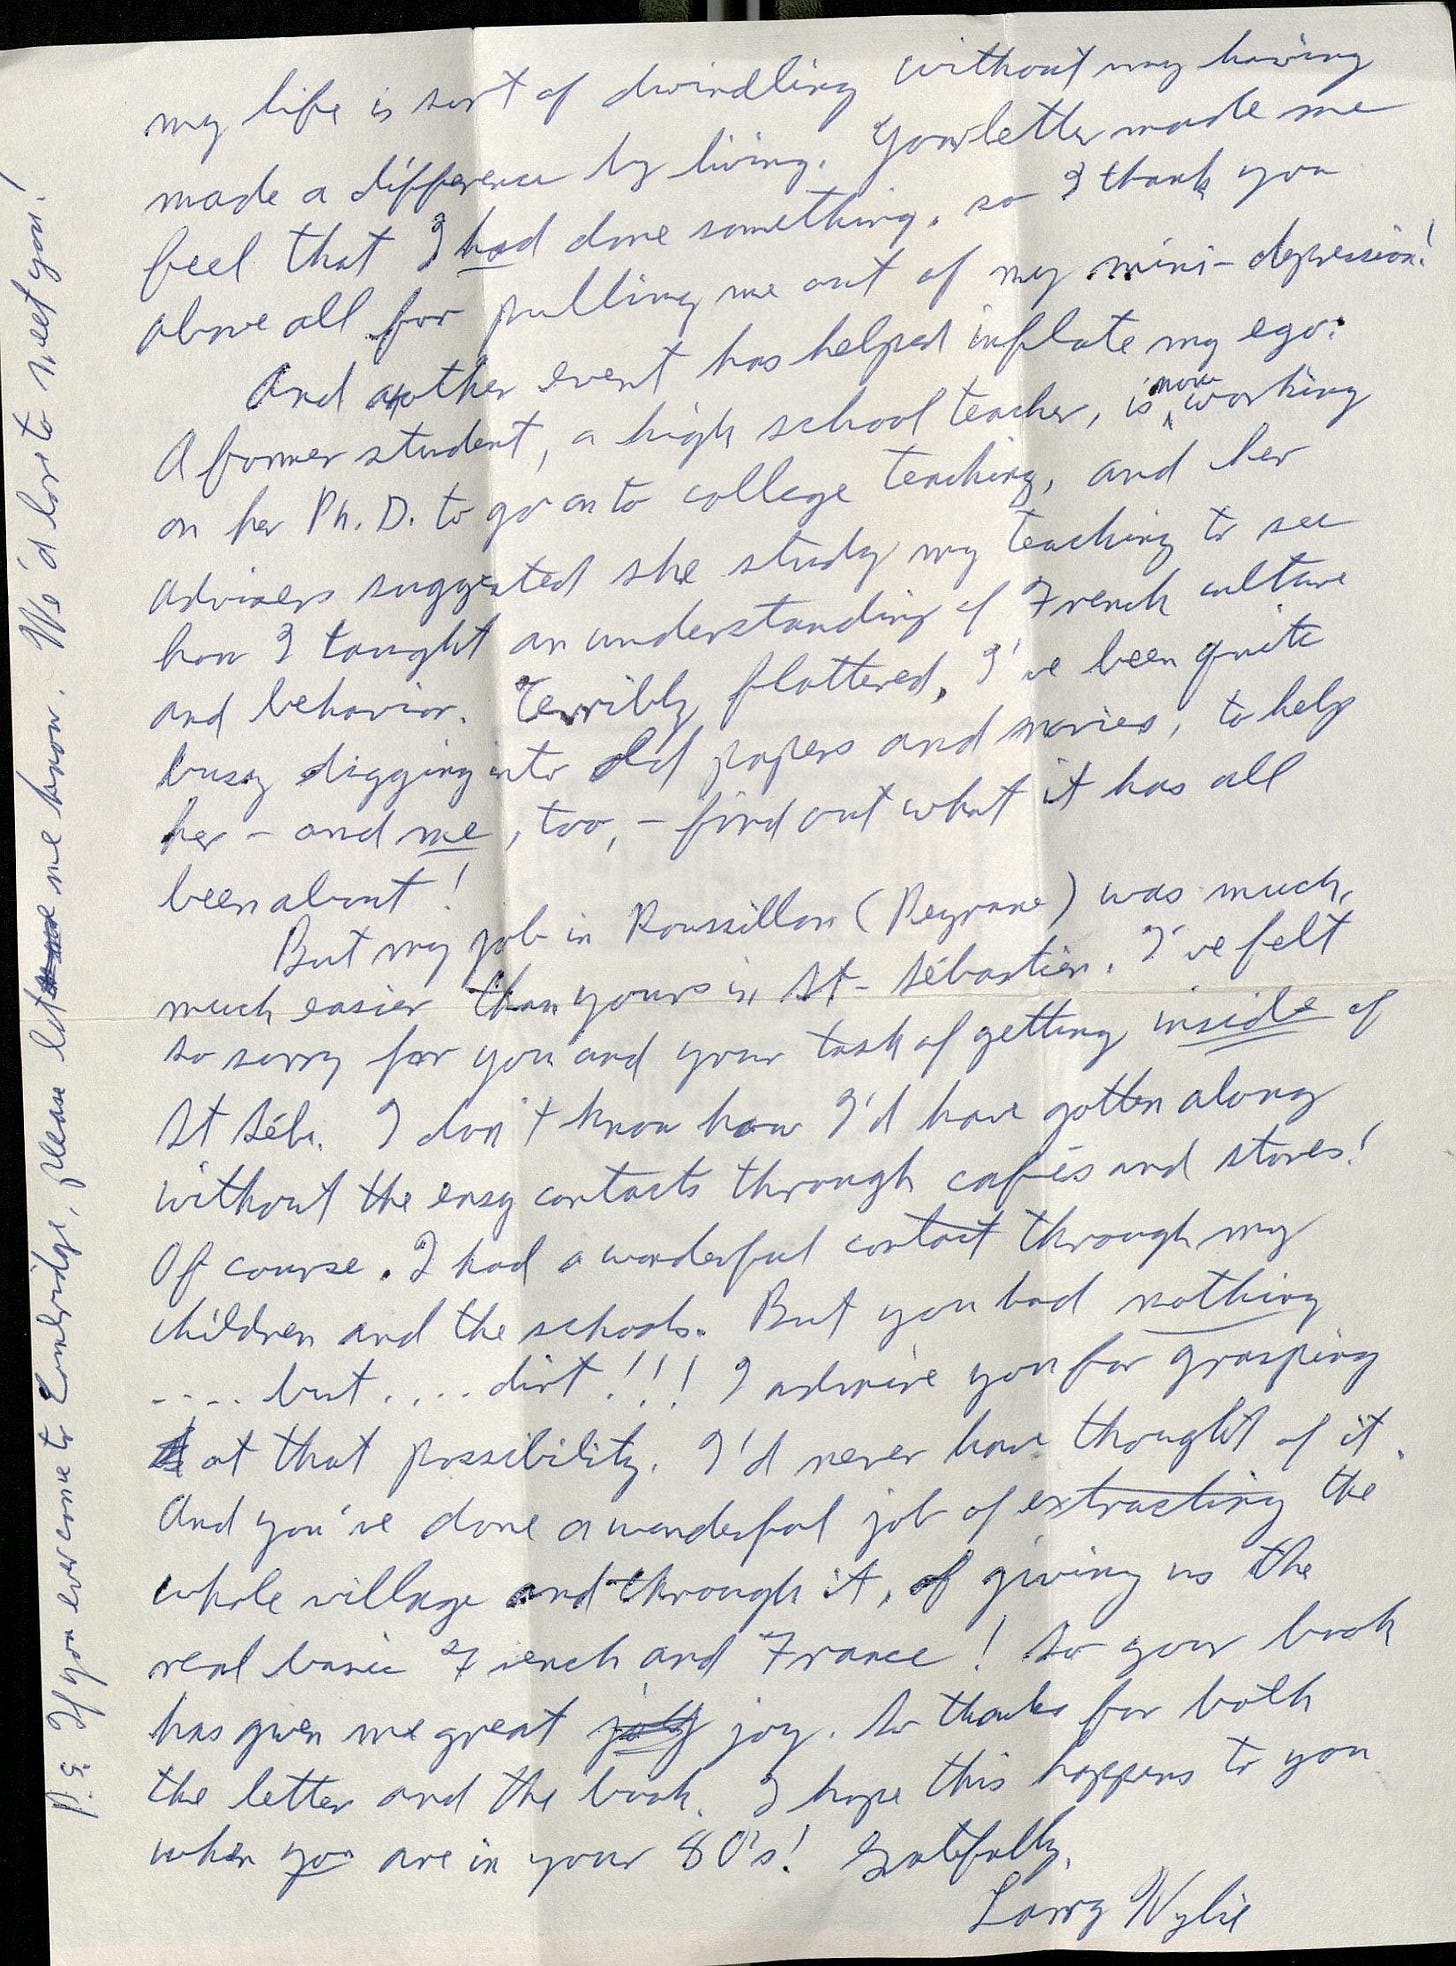 my life is sort of dwindling without my having
made a difference by living. Your letter made me
feel that I had done something, so I thank you
above all for pulling me out of my mini-depression!
And another event has helped inflate my ego:
A former student, a high school teacher, is now working
on her Ph. D. to go on to college teaching, and her
advisers suggested she study my teaching to see
how I taught an understanding of French culture
and behavior. Terribly flattered, I've been quite
busy digging into old papers and movies, to help
her - and me, too, - find out what it has all
been about!
But my job in Roussillon (Peyrane) was much,
much easier than yours in St-Sébastien. I've felt
so sorry for you and your task of getting inside of
St Séb. I don't know how I'd have gotten along
without the easy contacts through cafés and stores!
Of course, I had a wonderful contact through my
children and the schools. But you had nothing
.... but .... dirt!!! I admire you for grasping
at that possibility. I'd never have thought of it.
And you've done a wonderful job of extracting the
whole village and through it, of giving us the
real basic French and France! So your book
has given me great joy. So thanks for both
the letter and the book. I hope this happens to you
when you are in your 80's! Gratefully,
Larry Wylie
P.S. If you ever come to Cambridge, please let me know. We'd love to meet you!